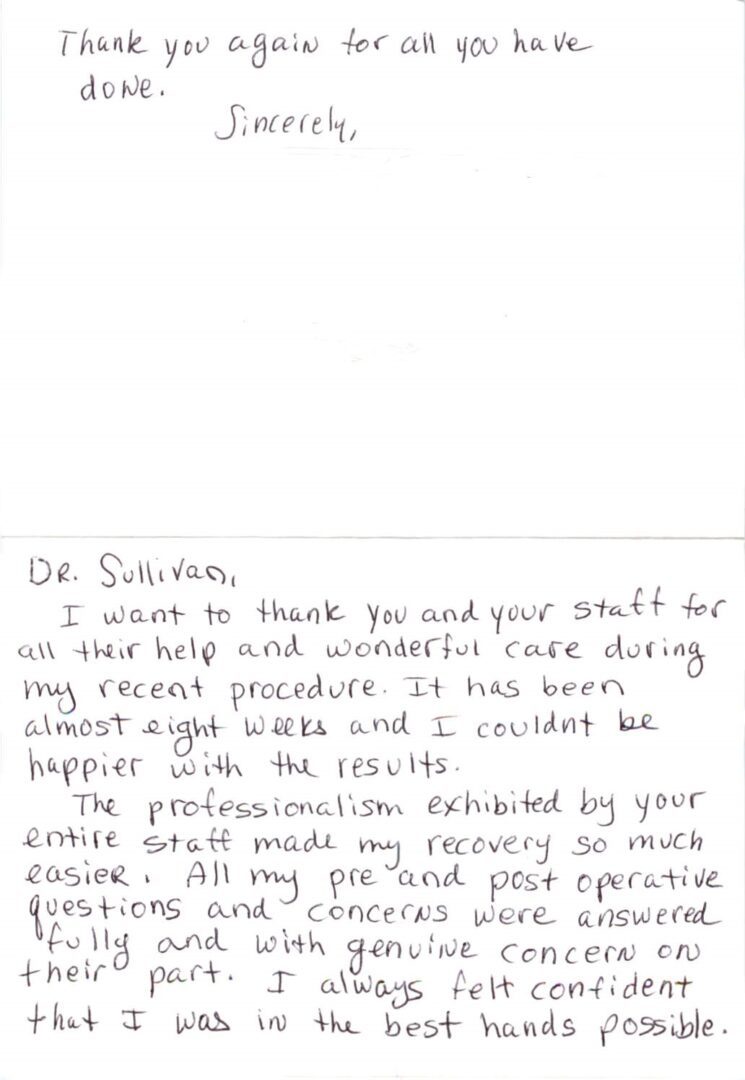 Thank you again for all you have
done.
Sincerely,
DR. Sullivan,
I want to thank you and your staff for
all their help and wonderful care during
my recent procedure. It has been
almost eight weeks and I couldnt be
happier with the results.
The professionalism exhibited by your
entire staff made my recovery so much
easier. All my pre and post operative
questions and concerns were answered
fully and with genuine concern on
their part. I always felt confident
that I was in the best hands possible.